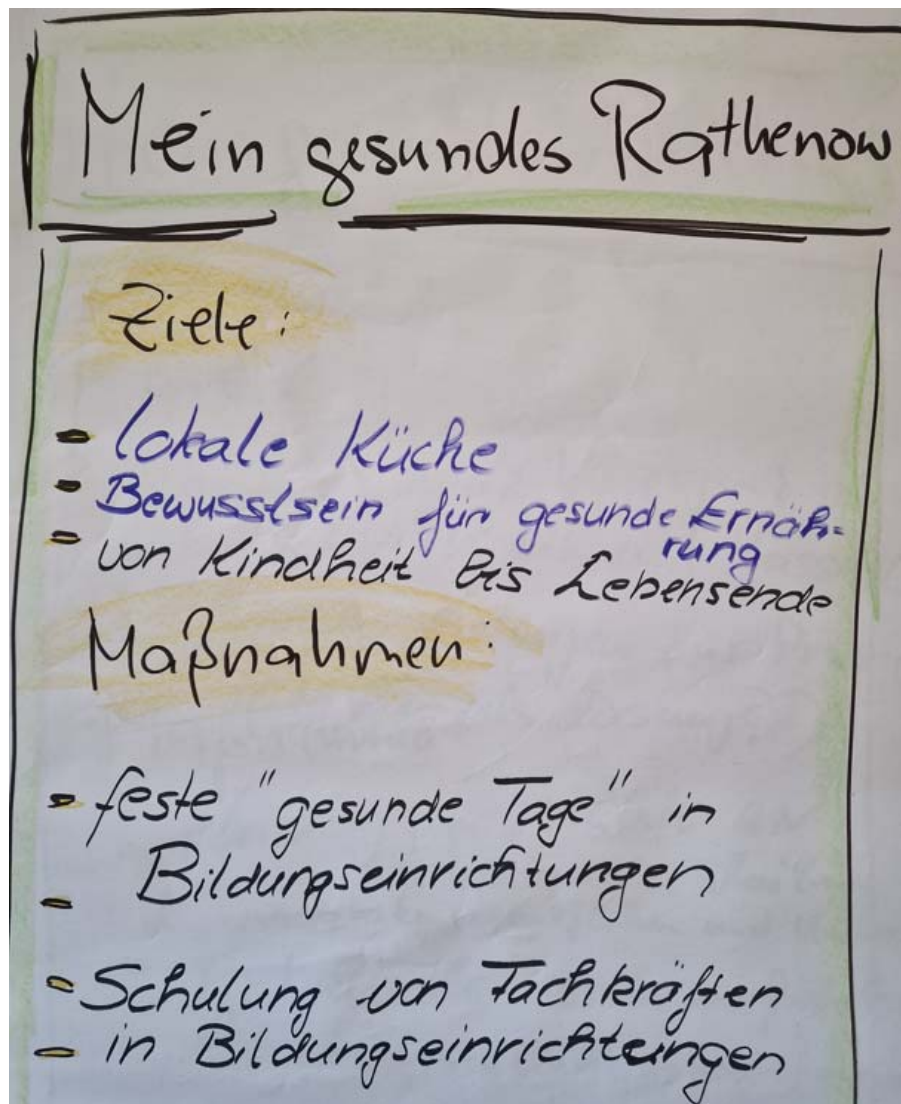 Mein gesundes Rathenow
Ziele:
- lokale Küche
- Bewusstsein für gesunde Ernäh-
rung
- von Kindheit bis Lebensende
Maßnahmen:
- feste "gesunde Tage" in
Bildungseinrichtungen
-
- Schulung von Fachkräften
- in Bildungseinrichtungen